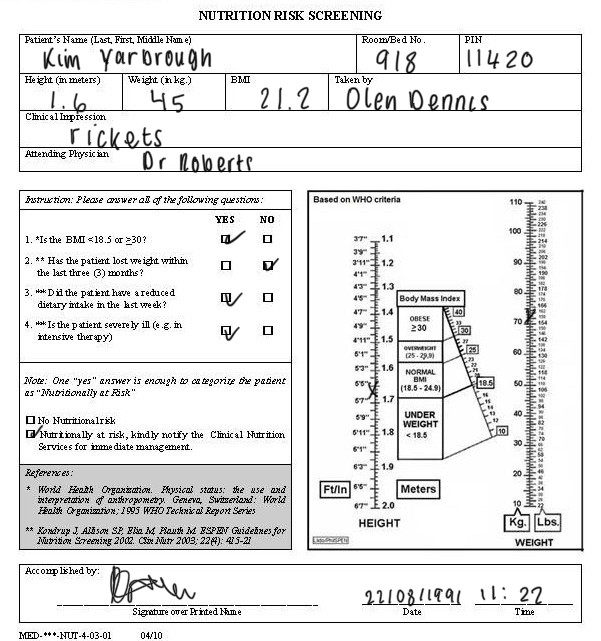 NUTRITION RISK SCREENING
Patient's Name (Last, First, Middle Name) Room/Bed No. PIN
Kim Yarbrough 918 11420
Height (in meters) Weight (in kg.) BMI Taken by
1.6 45 21.2 Olen Dennis
Clinical Impression
rickets
Attending Physician
Dr Roberts
Instruction: Please answer all of the following questions:
YES NO
1. *Is the BMI <18.5 or ≥30?
2. ** Has the patient lost weight within
the last three (3) months?
3. ** Did the patient have a reduced
dietary intake in the last week?
4. ** Is the patient severely ill (e.g. in
intensive therapy)
Note: One "yes" answer is enough to categorize the patient
as "Nutritionally at Risk"
No Nutritional risk
Nutritionally at risk, kindly notify the Clinical Nutrition
Services for immediate management.
References:
* World Health Organization. Physical status: the use and
interpretation of anthropometry. Geneva, Switzerland: World
Health Organization; 1995 WHO Technical Report Series
** Kondrup J, Allison SP, Elia M, Plauth M. ESPEN Guidelines for
Nutrition Screening 2002. Clin Nutr 2003; 22(4): 415-21
Based on WHO criteria
3'7" 1.1
3'9"
3'11" 1.2
4'1"
4'3" 1.3
4'5"
4'7" 1.4
4'9"
4'11" 1.5
5'1"
5'3" 1.6
5'5"
5'7" 1.7
5'9"
5'11" 1.8
6'1"
6'3" 1.9
6'5"
6'7" 2.0
Ft/In Meters
HEIGHT
Body Mass Index
OBESE
≥30
OVERWEIGHT
(25 - 29.9)
NORMAL
BMI
(18.5 - 24.9)
UNDER
WEIGHT
< 18.5
40
30
25
18.5
10
110
100
90
80
70
60
50
40
30
20
10
Kg. Lbs.
WEIGHT
Accomplished by:
22/08/1991 11:22
Signature over Printed Name Date Time
MED-***-NUT-4-03-01 04/10